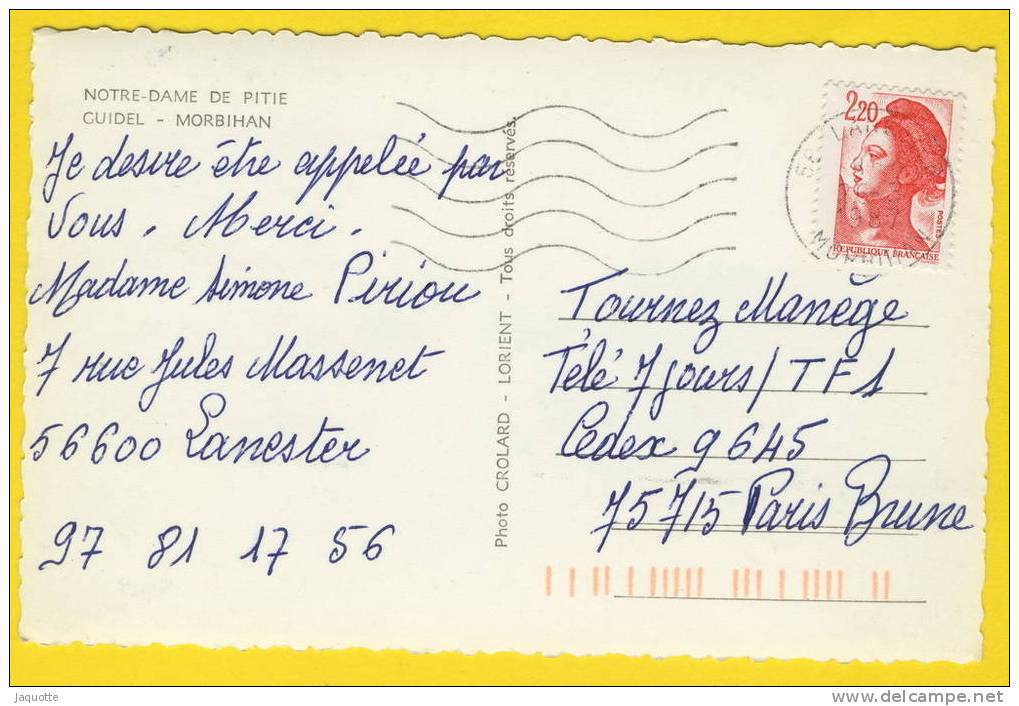 NOTRE-DAME DE PITIE
GUIDEL - MORBIHAN
Je desire être appelée par
Vous. Merci.
Madame Simone Piriou
7 rue Jules Massenet
56600 Lanester
97 81 17 56
Photo CROLARD - LORIENT - Tous droits réservés.
2,20
POSTES
REPUBLIQUE FRANCAISE
56 VAN
1987
MORBIHAN
Tournez Manège
Télé 7 jours/TF1
Cedex 9645
75715 Paris Brune
Jaquotte
©delcampe.net